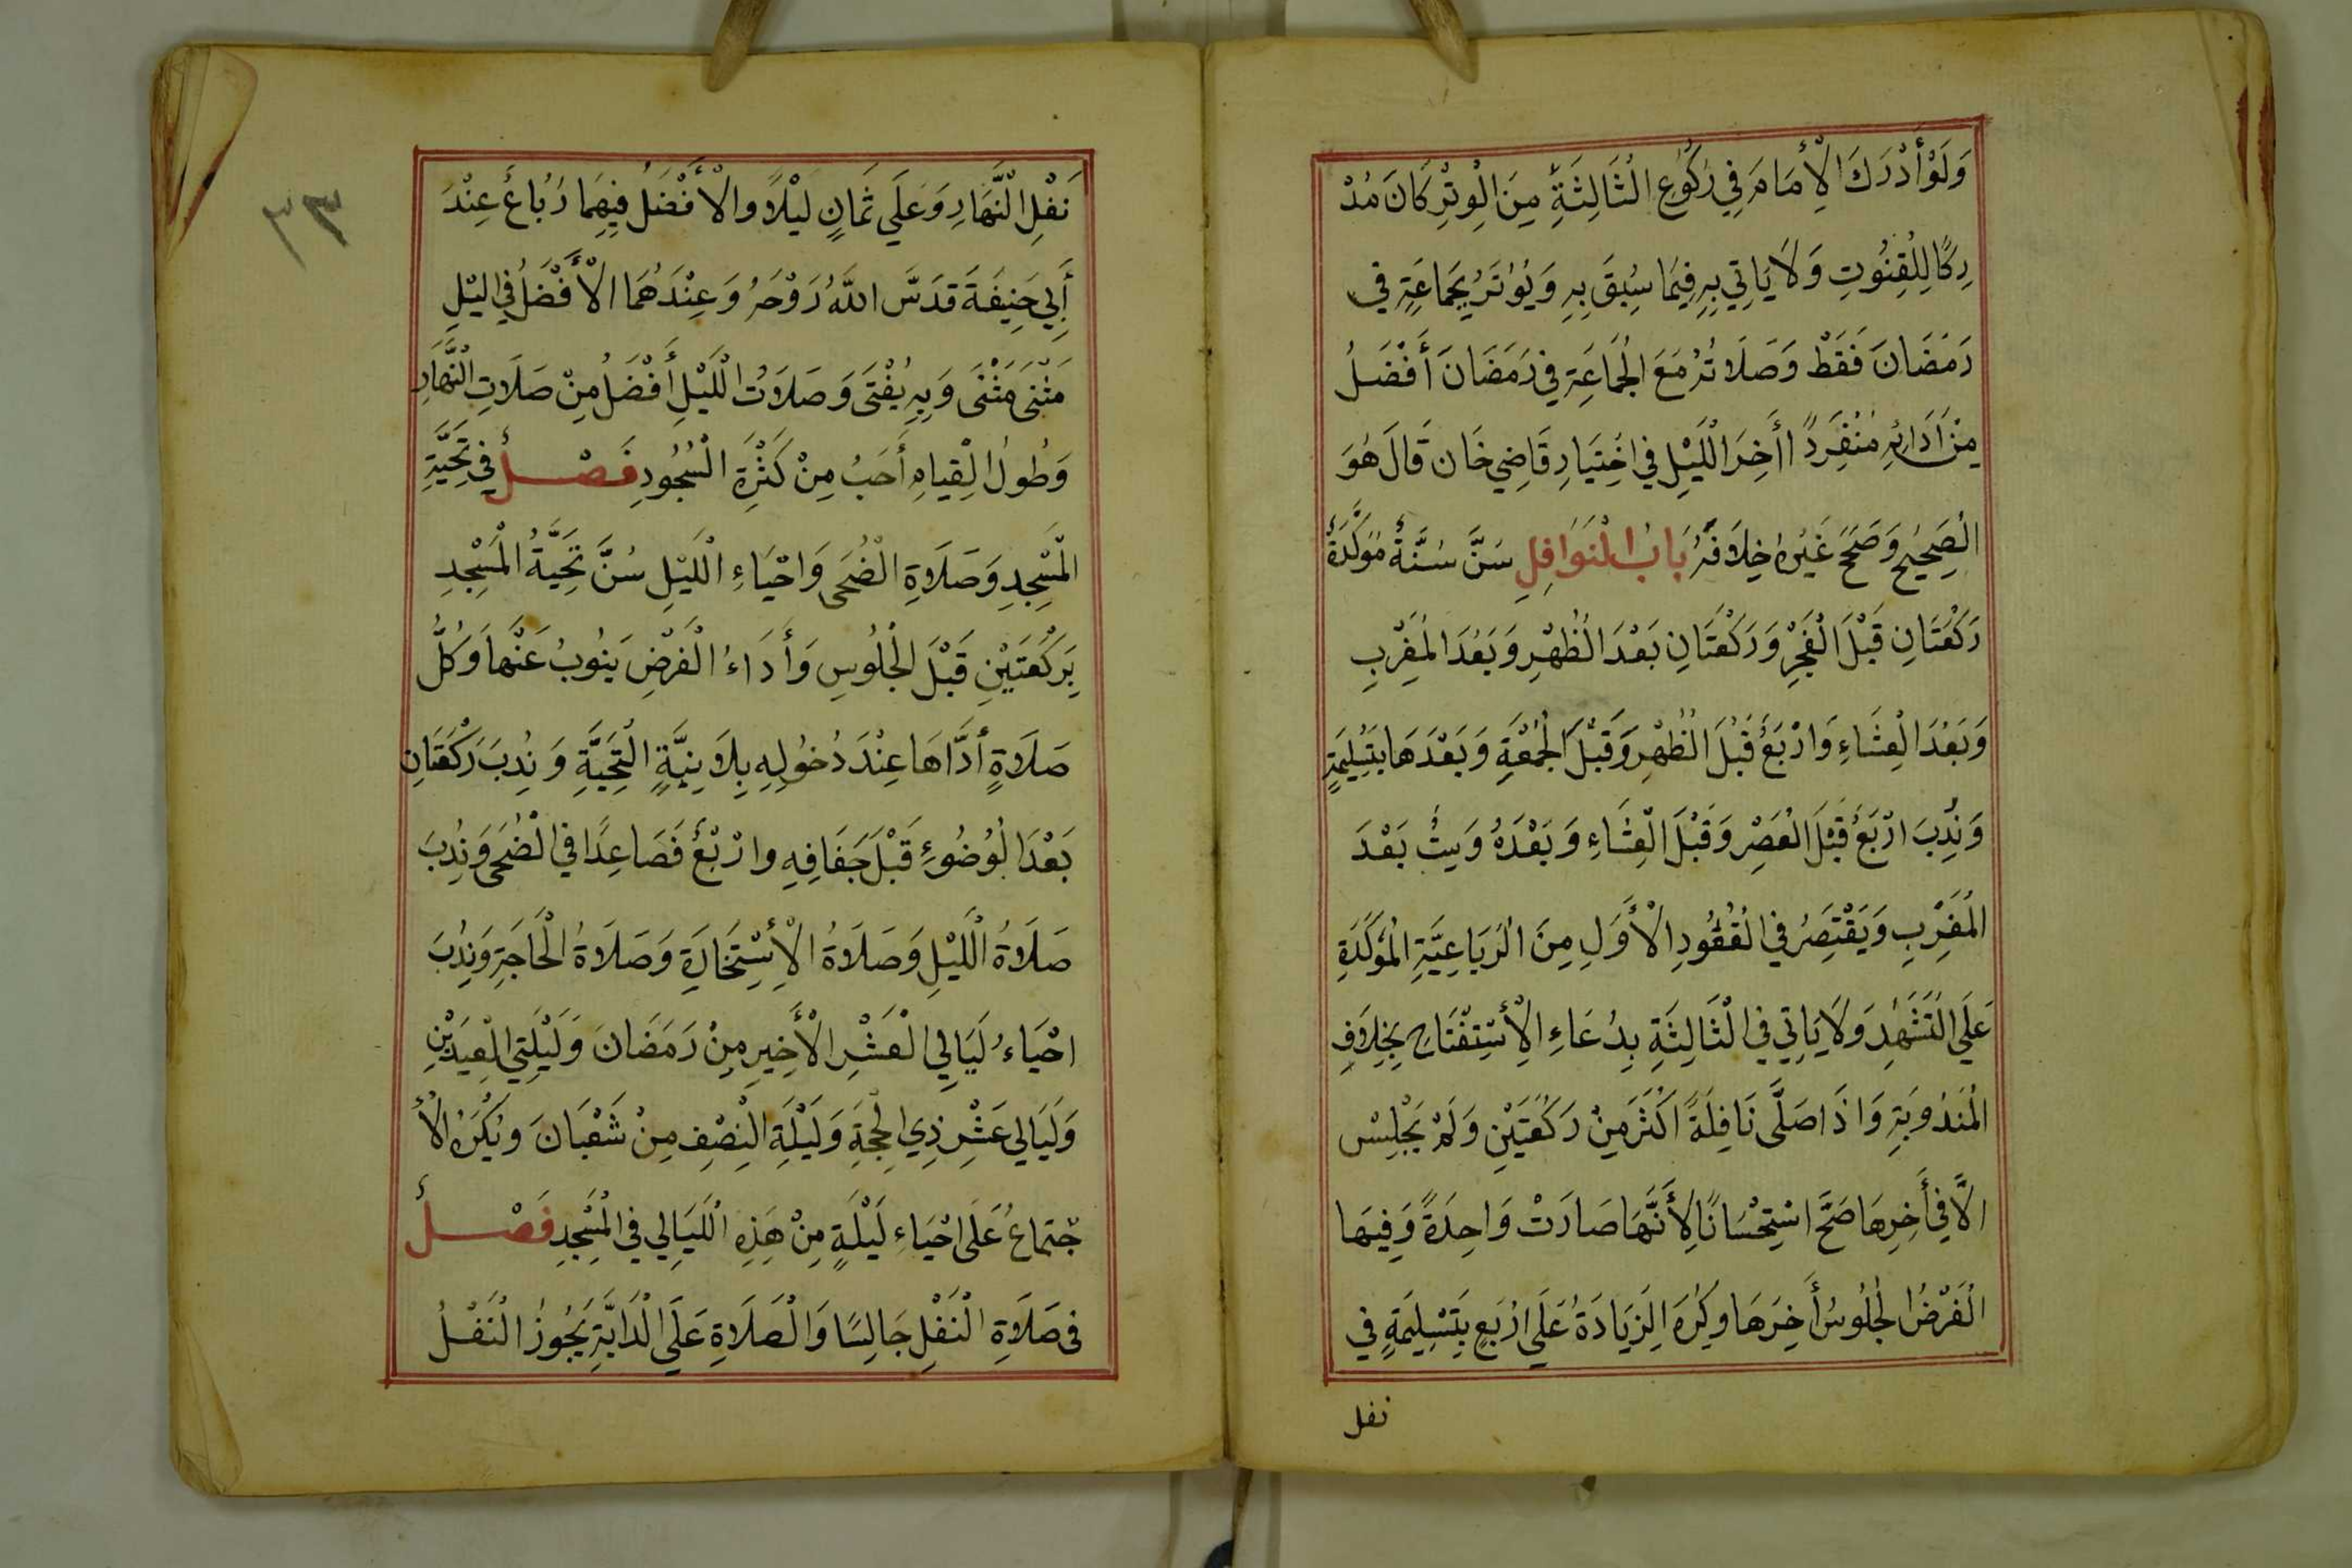 وَلَوْ أَدْرَكَ الْإِمَامَ فِي رُكُوعِ الْثَالِثَةِ مِنَ الْوِتْرِ كَانَ مُدْ
رِكًا لِلْقِنُوتِ وَلَا يَاتِي بِهِ فِيمَا سُبِقَ بِهِ وَيُوْتَرُ بِجَمَاعَةٍ فِي
رَمَضَانَ فَقَطْ وَصَلَاتُهُ مَعَ الْجَمَاعَةِ فِي رَمَضَانَ أَفْضَلُ
مِنْ أَدَائِهِ مُنْفَرِدً أَخِرَ الْلَيْلِ فِي اخْتِيَارِ قَاضِي خَان قَالَ هُوَ
الْصَحِيْحُ وَصَحَّ غَيْرُهُ خِلَافَهُ بَابُ الْنَوَافِلِ سَنَّ سُنَّةً مُوَكَّدَةً
رَكْعَتَانِ قَبْلَ الْفَجْرِ وَرَكْعَتَانِ بَعْدَ الْظُهْرِ وَبَعْدَ الْمَغْرِبِ
وَبَعْدَ الْعِشَاءِ وَارْبَعُ قَبْلَ الْظُهْرِ وَقَبْلَ الْجُمُعَةِ وَبَعْدَهَا بِتَسْلِيمَةٍ
وَنُدِبَ ارْبَعُ قَبْلَ الْعَصْرِ وَقَبْلَ الْعِشَاءِ وَبَعْدَهُ وَسِتُ بَعْدَ
الْمَغْرِبِ وَيَقْتَصِرُ فِي الْقُعُودِ الْأَوَّلِ مِنَ الْرُبَاعِيَّةِ الْمُؤَكَّدَةِ
عَلَي الْتَشَهُدِ وَلَا يَاتِي فِي الْثَالِثَةِ بِدُعَاءِ الْإِسْتِفْتَاحِ بِخِلَافِ
الْمَنْدُوبَةِ وَاذَا صَلَّى نَافِلَةً اكْثَرَ مِنْ رَكْعَتَيْنِ وَلَمْ يَجْلِسْ
الَّا فِي أَخِرِهَا صَحَّ اسْتِحْسَانًا لِأَنَّهَا صَارَتْ وَاحِدَةً وَفِيهَا
الْفَرْضُ الْجُلُوسُ أَخِرَهَا وَكُرِهَ الْزِيَادَةُ عَلَي ارْبَعٍ بِتَسْلِيمَةٍ فِي
نفل
نَفْلِ الْنَّهَارِ وَعَلَي ثَمَانٍ لَيْلًا وَالْأَفْضَلُ فِيهِمَا رُبَاعُ عِنْدَ
أَبِي حَنِيفَةَ قَدَسَّ اللَّهُ رَوْحَهُ وَعِنْدَهُمَا الْأَفْضَلُ فِي اليْلِ
مَثْنَى مَثْنَى وَبِهِ يُفْتَى وَصَلَاتُ الْلَيْلِ أَفْضَلُ مِنْ صَلَاتِ الْنَّهَارِ
وَطُولُ الْقِيَامِ أَحَبُ مِنْ كَثْرَةِ الْسُجُودِ فَصْلُ فِي تَحِيَّةِ
الْمَسْجِدِ وَصَلَاةِ الْضُحَى وَاحْيَاءِ الْلَيْلِ سُنَّ تَحِيَّةُ الْمَسْجِدِ
بِرَكْعَتَيْنِ قَبْلَ الْجُلُوسِ وَأَدَاءُ الْفَرْضِ يَنُوبُ عَنْهَا وَكُلُّ
صَلَاةٍ أَدَّاهَا عِنْدَ دُخُولِهِ بِلَا نِيَّةٍ الْتَحِيَّةِ وَنُدِبَ رَكْعَتَانِ
بَعْدَ الْوُضُوءِ قَبْلَ جَفَافِهِ وارْبَعُ فَصَاعِدًا فِي الْضُحَى وَنُدِبَ
صَلَاةُ الْلَيْلِ وَصَلَاةُ الْأِسْتِخَارَةِ وَصَلَاةُ الْحَاجَةِ وَنُدِبَ
احْيَاءُ لَيَالِي الْعَشْرِ الْأَخِيرِ مِنْ رَمَضَانَ وَلَيْلَتِي الْعِيدَيْنِ
وَلَيَالِي عَشْرِ ذِي الْحِجَةِ وَلَيْلَةِ الْنِصْفِ مِنْ شَعْبَانَ وَيُكْرَهُ الْأ
جْتِمَاعُ عَلَى احْيَاءِ لَيْلَةٍ مِنْ هَذِهِ الْلَيَالِي فِي الْمَسْجِدِ فَصْلُ
فِى صَلَاةِ الْنَفْلِ جَالِسًا وَالْصَلَاةِ عَلَي الْدَابَّةِ يَجُوزُ الْنَفْلُ